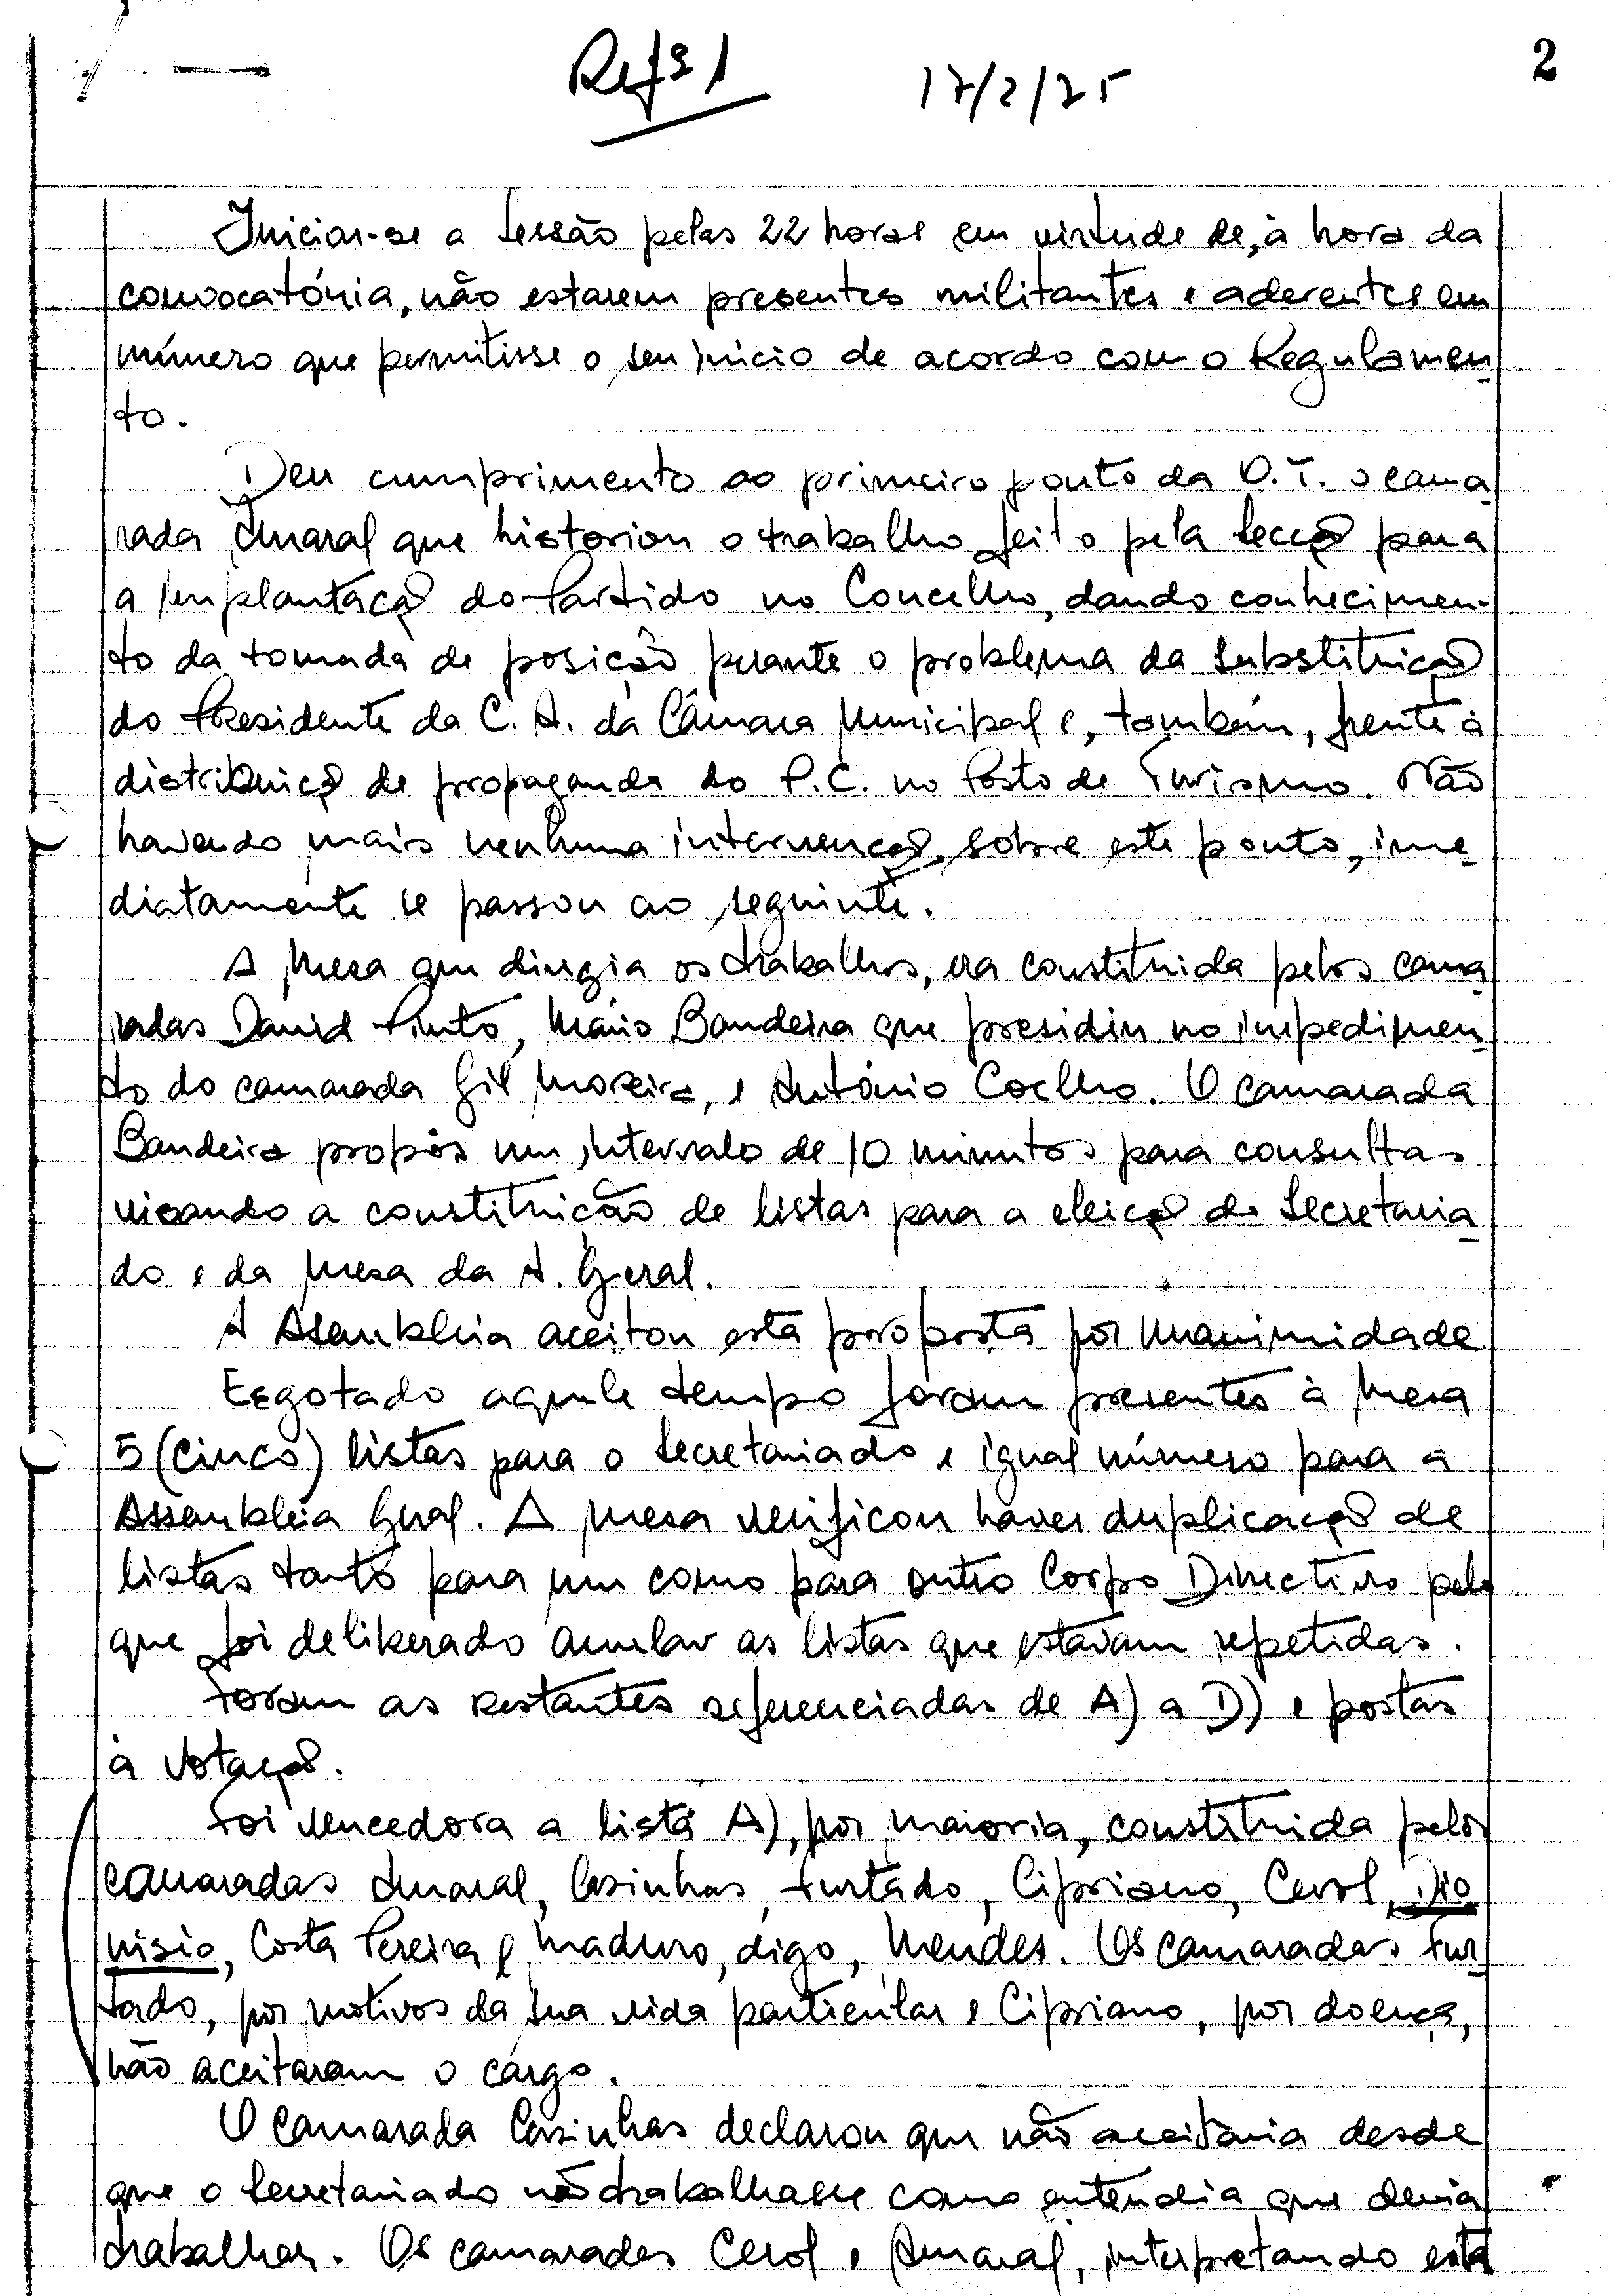 Refª 1 17/2/75 2
Iniciou-se a sessão pelas 22 horas em virtude de, à hora da
convocatória, não estarem presentes militantes e aderentes em
número que permitisse o seu início de acordo com o Regulamen
to.
Deu cumprimento ao primeiro ponto da O.T. o cama
rada Amaral que historiou o trabalho feito pela Secção para
a implantação do Partido no Concelho, dando conhecimen-
to da tomada de posição perante o problema da substituição
do Presidente da C. A. da Câmara Municipal e, também, frente à
distribuição de propaganda do P.C. no Posto de Turismo. Não
havendo mais nenhuma intervenção, sobre este ponto, ime
diatamente se passou ao seguinte.
A Mesa que dirigia os trabalhos, era constituida pelos cama
radas David Pinto, Mário Bandeira que presidiu no impedimen
to do camarada Gil Moreira, e António Coelho. O camarada
Bandeira propôs um intervalo de 10 minutos para consultas
visando a constituição de listas para a eleição do Secretaria
do e da Mesa da A. Geral.
A Assembleia aceitou esta proposta por unanimidade
Esgotado aquele tempo foram presentes à Mesa
5 (cinco) listas para o Secretariado e igual número para a
Assembleia Geral. A Mesa verificou haver duplicação de
listas tanto para um como para outro Corpo Directivo pelo
que foi deliberado anular as listas que estavam repetidas.
Foram as restantes referenciadas de A) a D) e postas
à votação.
Foi vencedora a lista A), por maioria, constituida pelos
camaradas Amaral, Casinhas, Furtado, Cipriano, Cerol, Dio
nisio, Costa Pereira e Maduro, digo, Mendes. Os camaradas Fur
tado, por motivos da sua vida particular e Cipriano, por doença,
não aceitaram o cargo.
O camarada Casinhas declarou que não aceitaria desde
que o Secretariado não trabalhasse como entendia que devia
trabalhar. Os camaradas Cerol e Amaral, interpretando esta